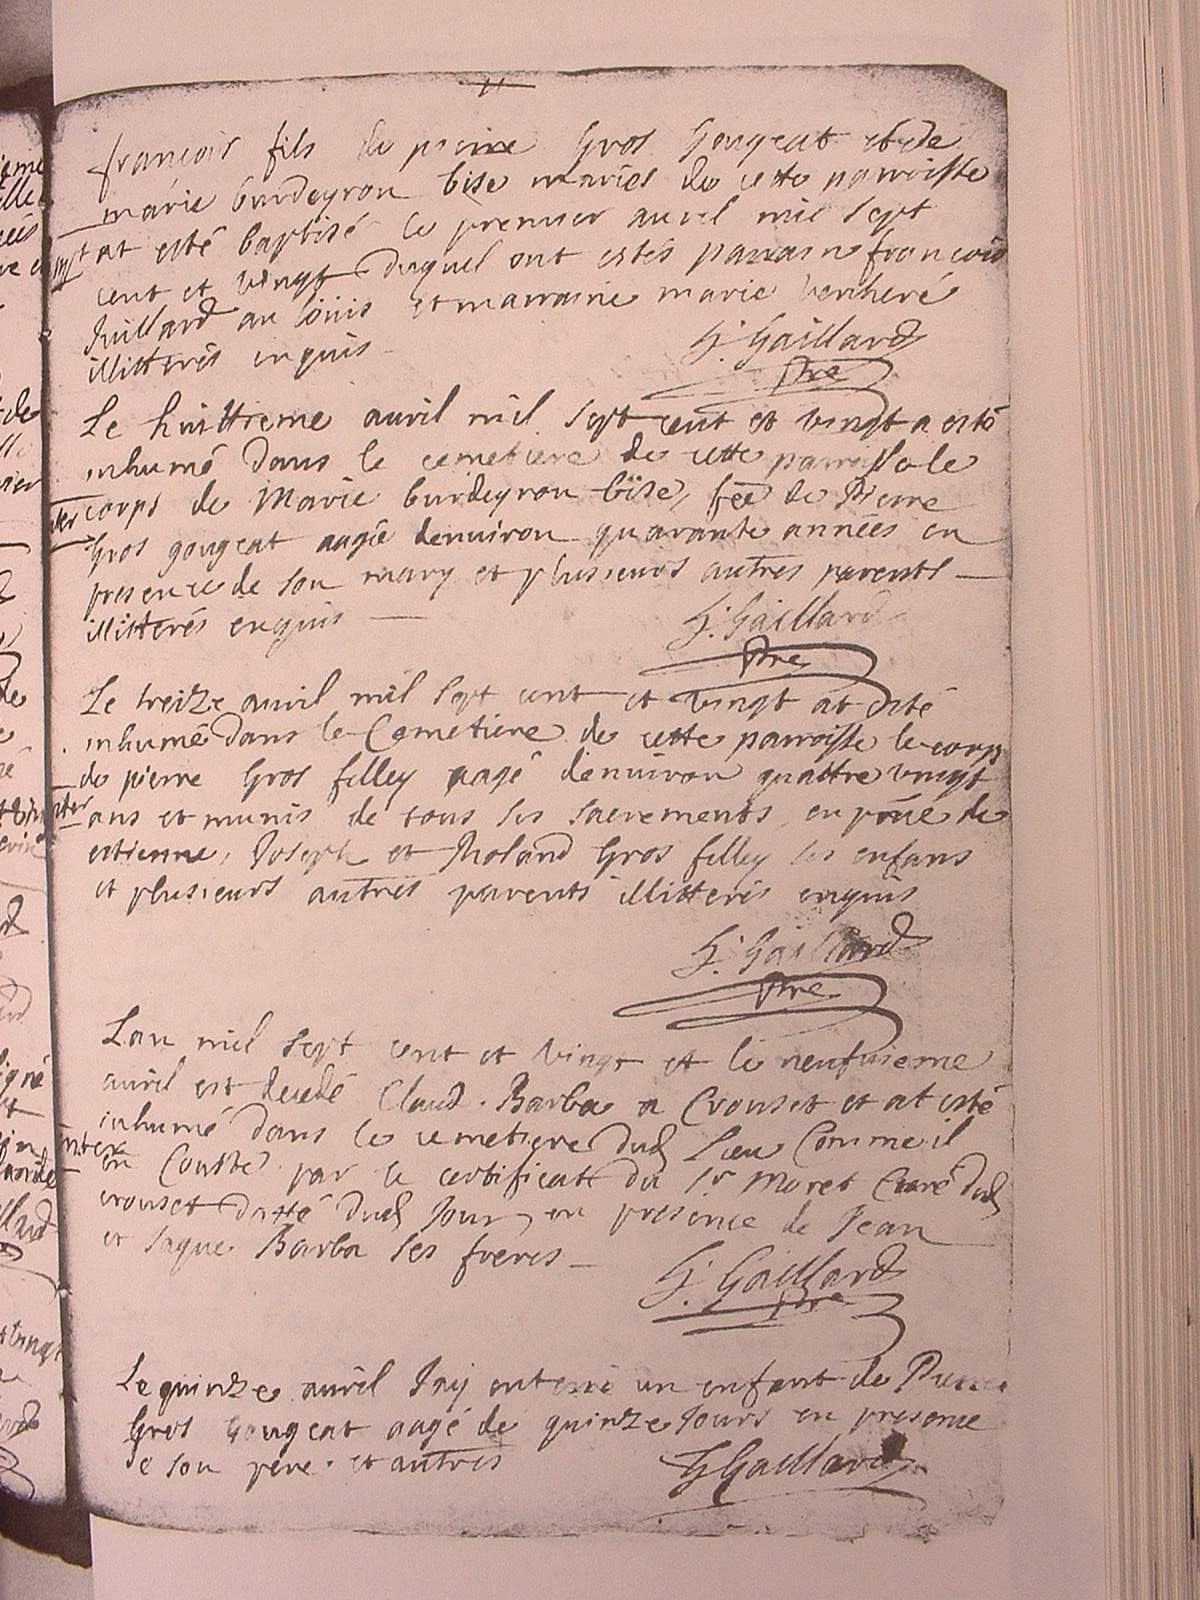 11
françois fils de pierre Gros Gougeat et de
marie burdeyron bise mariés de cette parroisse
at esté baptisé le premier avril mil sept
cent et vingt duquel ont estés parrain françois
Juillard au loüis et marraine marie
illitterés enquis
G. Gaillard
ptre
Le huittieme avril mil sept cent et vingt a esté
inhumé dans le cemetiere de cette parroisse le
corps de Marie burdeyron bise, fée de Pierre
Gros gougeat aagée denuiron quarante années en
presence de son mary et plusieurs autres parents
illitterés enquis
G. Gaillard
ptre
Le treize auril mil sept cent et vingt at esté
inhumé dans le Cemetiere de cette parroisse le corps
de pierre Gros filley aagé denuiron quattre vingt
ans et munis de tous ses sacrements, en pñce de
estienne, Joseph et Roland Gros filley ses enfans
et plusieurs autres parents illitterés enquis
G. Gaillard
ptre
Lan mil sept cent et vingt et le neufuieme
auril est decedé Claud. Barba a Crouset et at esté
inhumé dans le cemetiere dud Lieu Comme il
en Couste par le certificat du Sr Moret Curé dud
crouset datté dud Jour, en presence de Jean
et Jaque Barba ses freres
G. Gaillard
ptre
Le quinze auril Jay enterré un enfant de Pierre
Gros Gougeat aagé de quinze Jours en presence
de son pere et autres
G Gaillard